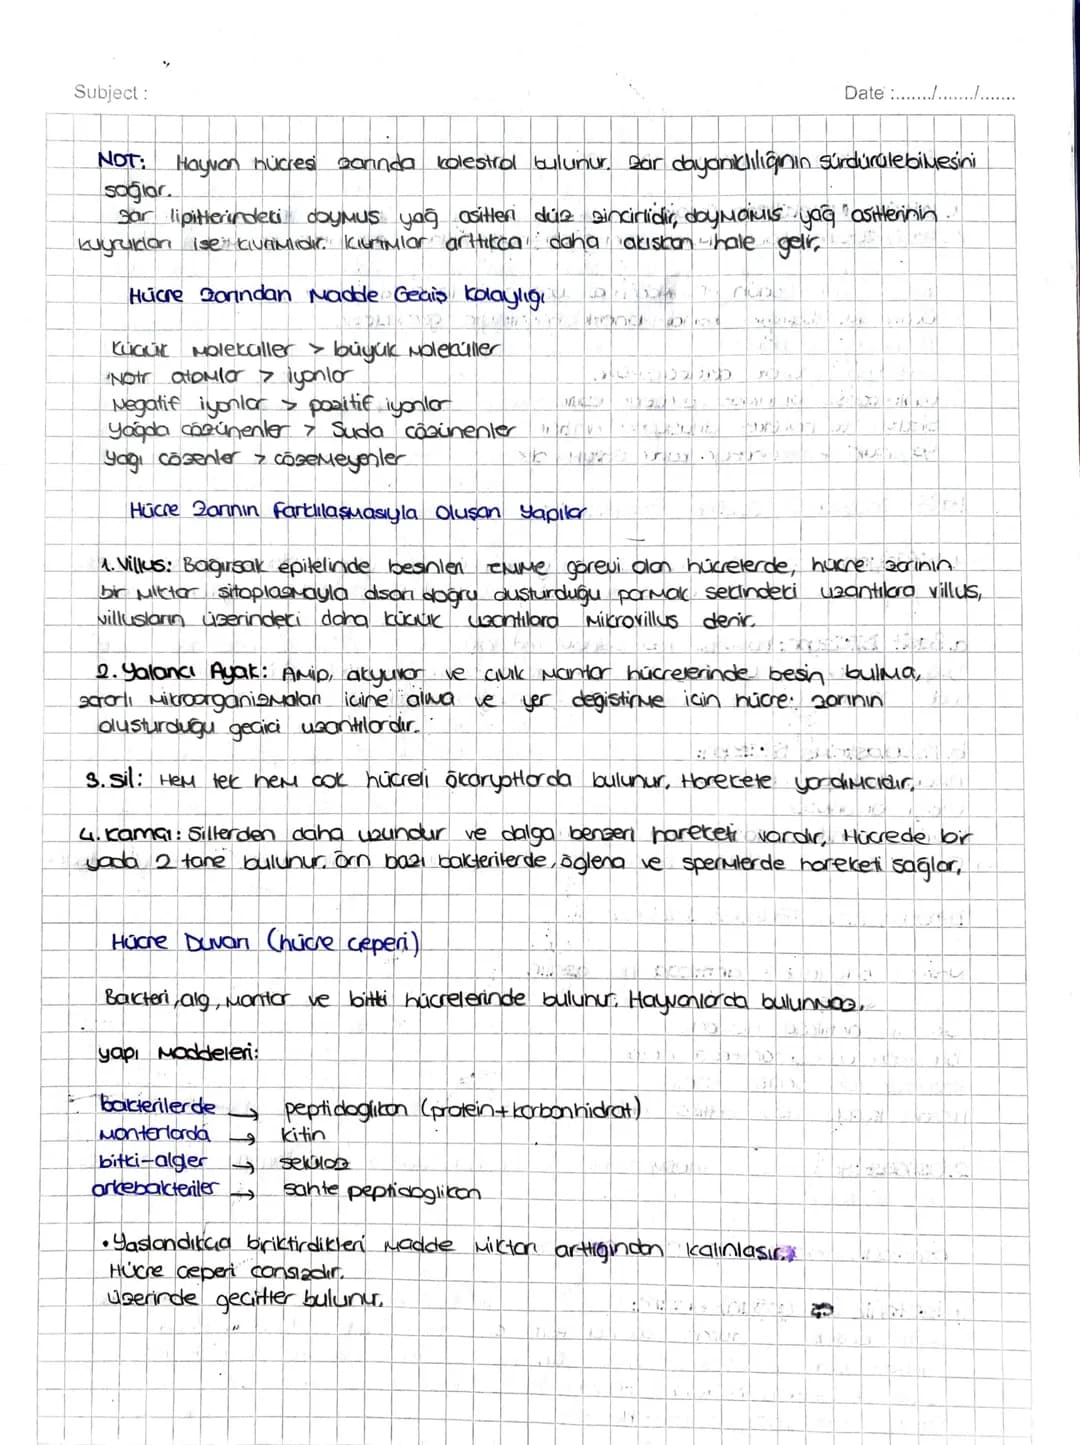 Subject :
Date :......./......./.......
NOT: Hayvan hücresi zarında kolestrol bulunur. Zar dayanıklılığının sürdürülebilmesini
sağlar.
Zar lipitlerindeki doymus yağ asitleri düz zincirlidir, doymamıs yağ asitlerinin
kuyrukları ise kıvrımlıdır. Kıvrımlar arttıkca daha akıskan hale gelir.
Hücre Zarından Madde Gecis Kolaylığı
Kücük Moleküller > büyük Moleküller
Notr atomlar > iyonlar
Negatif iyonlar > pozitif iyonlar
Yağda cözünenler > Suda cözünenler
Yagı cözenler > cözemeyenler
Hücre Zarının Farklılasmasıyla Olusan Yapılar
1. Villus: Bagırsak epitelinde besinleri emme görevi olan hücrelerde, hücre zarının
bir miktar sitoplasmayla dısarı dogru olusturduğu parmak seklindeki uzantılara villus,
villusların üzerindeki daha kücük uzantılara Mikrovillus denir.
2. Yalancı Ayak: Amip, akyuvar ve cıvık mantar hücrelerinde besin bulma,
zararlı mikroorganizmaları icine alma ve yer degistirme icin hücre zarının
olusturduğu gecici uzantılardır.
3. Sil: Hem tek hem cok hücreli ökaryotlarda bulunur, Harekete yardımcıdır.
4. Kamcı: Sillerden daha uzundur ve dalga benzeri hareketi vardır, Hücrede bir
yada 2 tane bulunur. Örn bazı bakterilerde, öglena ve spermlerde hareketi sağlar,
Hücre Duvarı (hücre ceperi)
Bakteri, alg, mantar ve bitki hücrelerinde bulunur. Hayvanlarda bulunmaz.
yapı Maddeleri:
bakterilerde → peptidoglikan (protein+karbonhidrat)
Manterlarda → kitin
bitki-algler → selüloz
arkebakteriler → sahte peptidoglikan
• Yaslandıkca biriktirdikleri Madde Miktarı arttığından kalınlasır.
Hücre ceperi cansızdır.
üzerinde gecitler bulunur.